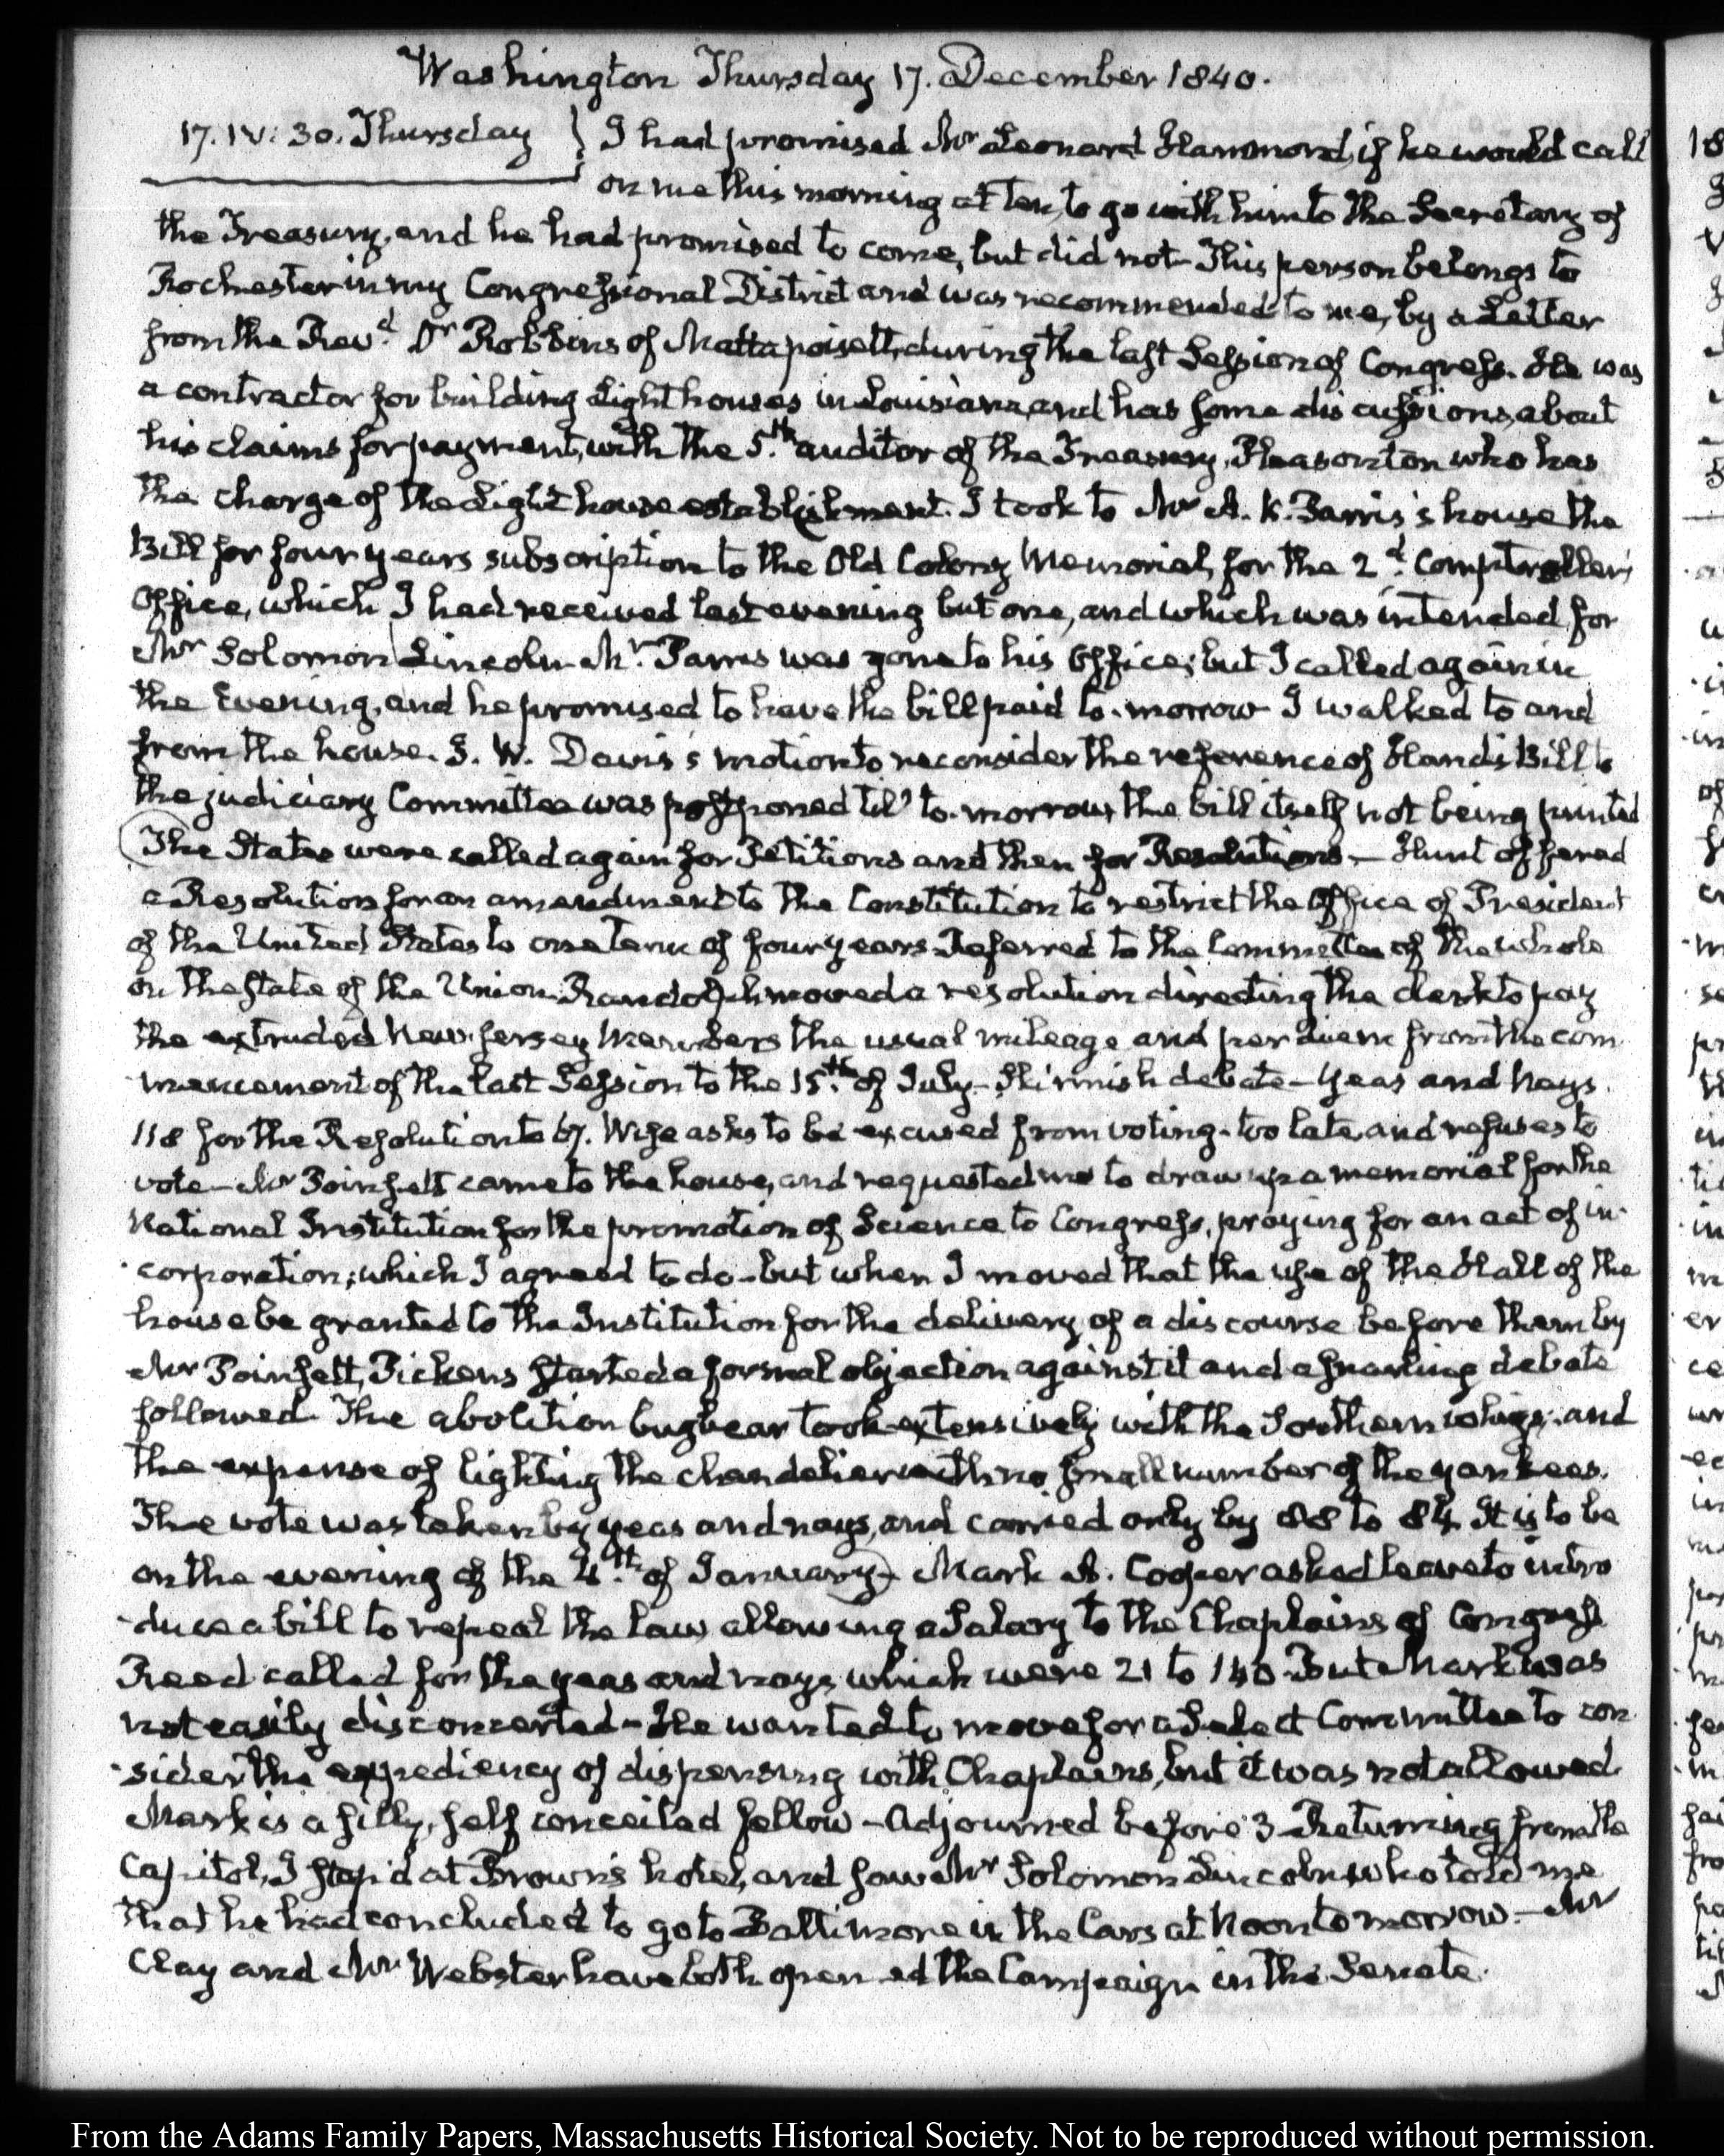 Washington Thursday 17. December 1840.
17. IV: 30. Thursday } I had promised Mr Leonard Hammond, if he would call
on me this morning at ten, to go with him to the Secretary of
the Treasury, and he had promised to come, but did not– This person belongs to
Rochester in my Congressional District and was recommended to me, by a Letter
from the Revd. Dr Robbins of Mattapoisett, during the last Session of Congress. He was
a contractor for building Light houses in Louisiana, and has some discussions, about
his claims for payment, with the 5th. auditor of the Treasury, Pleasonton who has
the charge of the Light house establishment. I took to Mr A. K. Parris's house the
Bill for four years subscription to the Old Colony Memorial, for the 2d. Comptroller's
Office, which I had received last evening but one, and which was intended for
Mr Solomon Lincoln– Mr. Parris was gone to his Office; but I called again in
the Evening, and he promised to have the bill paid to-morrow– I walked to and
from the house. J. W. Davis's motion to reconsider the reference of Hand's Bill to
the judiciary Committee was postponed till to-morrow, the bill itself not being printed
The States were called again for Petitions and then for Resolutions.– Hunt offered
a Resolution for an amendment to the Constitution to restrict the Office of President
of the United States to one term of four years– Referred to the Committee of the whole
on the state of the Union. Randolph moved a resolution directing the clerk to pay
the extruded New-Jersey Members the usual mileage and per diem from the com-
-mencement of the last Session to the 15th. of July– Skirmish debate– Yeas and Nays.
118 for the Resolution to 67. Wise asks to be excused from voting– too late, and refuses to
vote– Mr Poinsett came to the house, and requested me to draw up a memorial for the
National Institution for the promotion of Science to Congress, praying for an act of in-
-corporation; which I agreed to do– but when I moved that the use of the Hall of the
house be granted to the Institution for the delivery of a discourse before them by
Mr Poinsett, Pickens started a formal objection against it and a snarling debate
followed. The abolition bugbear took extensively with the Southern whigs; and
the expense of lighting the chandelier with no small number of the yankees.
The vote was taken by yeas and nays, and carried only by 88 to 84. It is to be
on the evening of the 4th. of January– Mark A. Cooper asked leave to intro
-duce a bill to repeal the law allowing a Salary to the Chaplains of Congress
Reed called for the yeas and nays which were 21 to 140– But Mark was
not easily disconcerted– He wanted to move for a Select Committee to con-
-sider the expediency of dispensing with Chaplains, but it was not allowed.
Mark is a silly, self conceited fellow– Adjourned before 3– Returning from the
Capitol, I stop'd at Brown's hotel, and saw Mr Solomon Lincoln who told me
that he had concluded to go to Baltimore in the Cars at Noon to morrow.– Mr
Clay and Mr Webster have both opened the Campaign in the Senate.
From the Adams Family Papers, Massachusetts Historical Society. Not to be reproduced without permission.